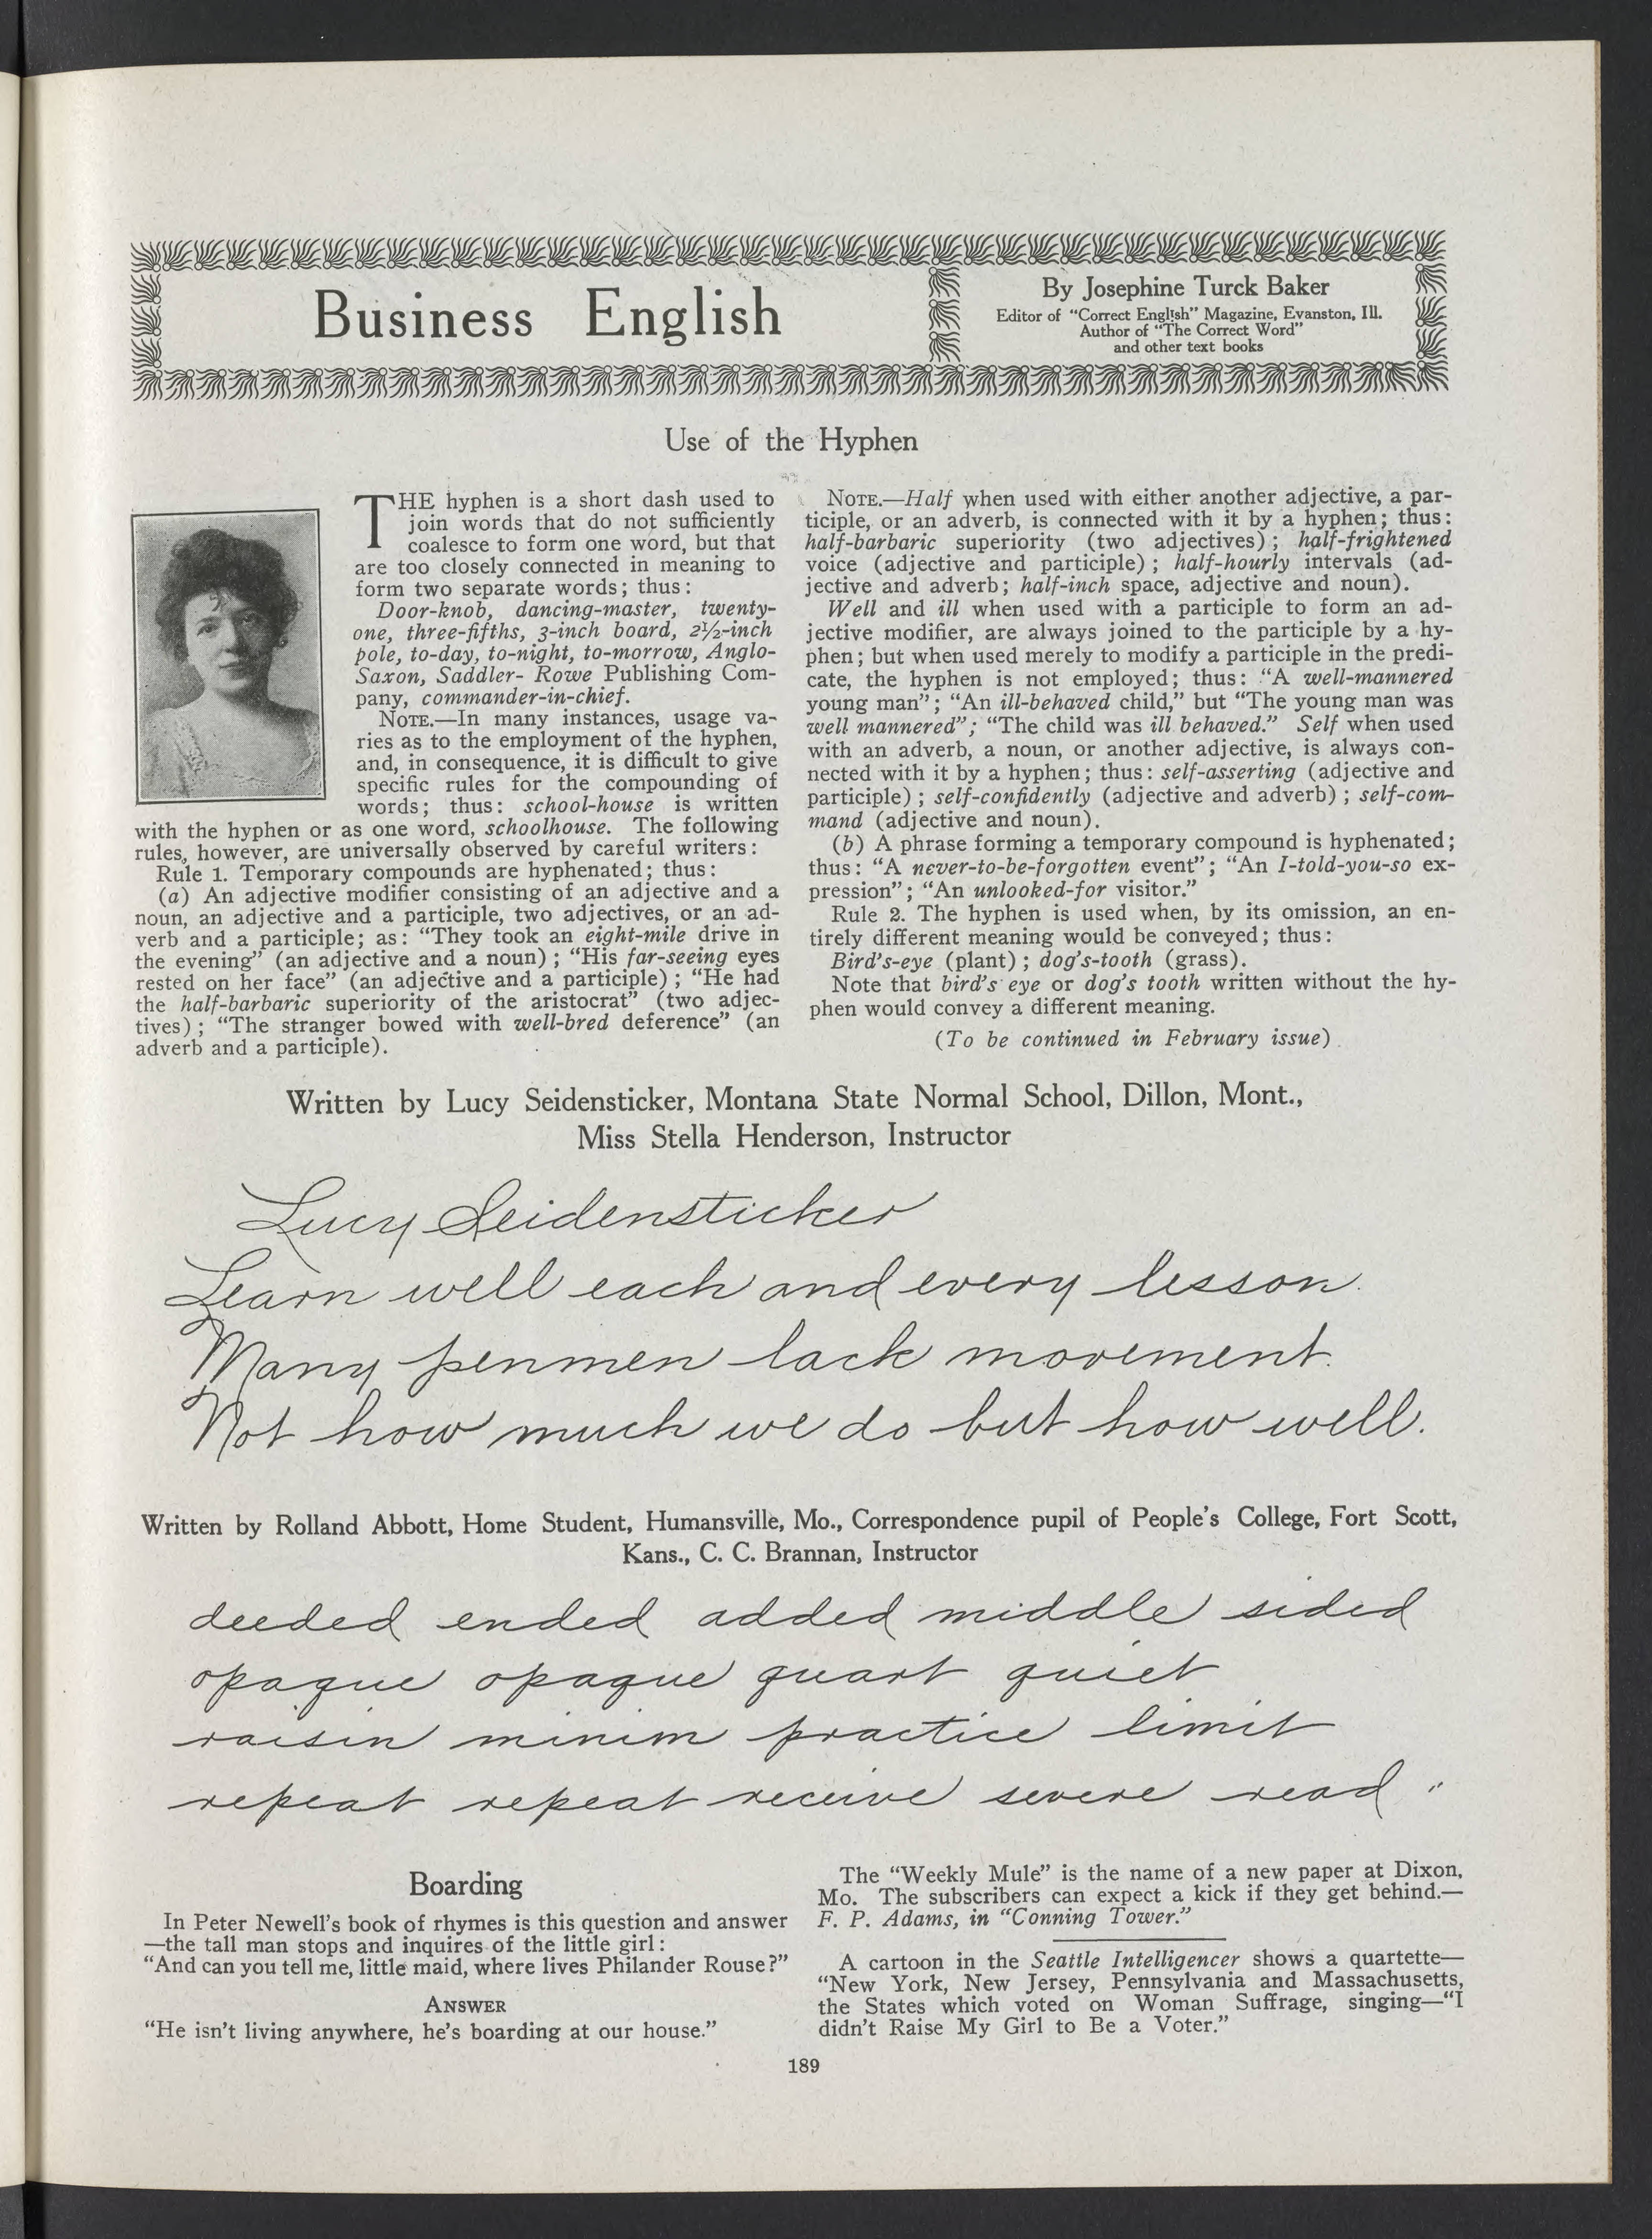 Business English
By Josephine Turck Baker
Editor of "Correct English" Magazine, Evanston, Ill.
Author of "The Correct Word"
and other text books
Use of the Hyphen
THE hyphen is a short dash used to
join words that do not sufficiently
coalesce to form one word, but that
are too closely connected in meaning to
form two separate words; thus:
Door-knob, dancing-master, twenty-
one, three-fifths, 3-inch board, 2½-inch
pole, to-day, to-night, to-morrow, Anglo-
Saxon, Saddler- Rowe Publishing Com-
pany, commander-in-chief.
NOTE.—In many instances, usage va-
ries as to the employment of the hyphen,
and, in consequence, it is difficult to give
specific rules for the compounding of
words; thus: school-house is written
with the hyphen or as one word, schoolhouse. The following
rules, however, are universally observed by careful writers:
Rule 1. Temporary compounds are hyphenated; thus:
(a) An adjective modifier consisting of an adjective and a
noun, an adjective and a participle, two adjectives, or an ad-
verb and a participle; as: "They took an eight-mile drive in
the evening" (an adjective and a noun); "His far-seeing eyes
rested on her face" (an adjective and a participle); "He had
the half-barbaric superiority of the aristocrat" (two adjec-
tives); "The stranger bowed with well-bred deference" (an
adverb and a participle).
NOTE.—Half when used with either another adjective, a par-
ticiple, or an adverb, is connected with it by a hyphen; thus:
half-barbaric superiority (two adjectives); half-frightened
voice (adjective and participle); half-hourly intervals (ad-
jective and adverb; half-inch space, adjective and noun).
Well and ill when used with a participle to form an ad-
jective modifier, are always joined to the participle by a hy-
phen; but when used merely to modify a participle in the predi-
cate, the hyphen is not employed; thus: "A well-mannered
young man"; "An ill-behaved child," but "The young man was
well mannered"; "The child was ill behaved." Self when used
with an adverb, a noun, or another adjective, is always con-
nected with it by a hyphen; thus: self-asserting (adjective and
participle); self-confidently (adjective and adverb); self-com-
mand (adjective and noun).
(b) A phrase forming a temporary compound is hyphenated;
thus: "A never-to-be-forgotten event"; "An I-told-you-so ex-
pression"; "An unlooked-for visitor."
Rule 2. The hyphen is used when, by its omission, an en-
tirely different meaning would be conveyed; thus:
Bird's-eye (plant); dog's-tooth (grass).
Note that bird's eye or dog's tooth written without the hy-
phen would convey a different meaning.
(To be continued in February issue)
Written by Lucy Seidensticker, Montana State Normal School, Dillon, Mont.,
Miss Stella Henderson, Instructor
Lucy Seidensticker
Learn well each and every lesson.
Many penmen lack movement.
Not how much we do but how well.
Written by Rolland Abbott, Home Student, Humansville, Mo., Correspondence pupil of People's College, Fort Scott,
Kans., C. C. Brannan, Instructor
deeded ended added middle sided
opaque opaque quart quiet
raisin minim practice limit
repeat repeat receive severe read "
Boarding
In Peter Newell's book of rhymes is this question and answer
—the tall man stops and inquires of the little girl:
"And can you tell me, little maid, where lives Philander Rouse?"
ANSWER
"He isn't living anywhere, he's boarding at our house."
The "Weekly Mule" is the name of a new paper at Dixon,
Mo. The subscribers can expect a kick if they get behind.—
F. P. Adams, in "Conning Tower."
A cartoon in the Seattle Intelligencer shows a quartette—
"New York, New Jersey, Pennsylvania and Massachusetts,
the States which voted on Woman Suffrage, singing—"I
didn't Raise My Girl to Be a Voter."
189